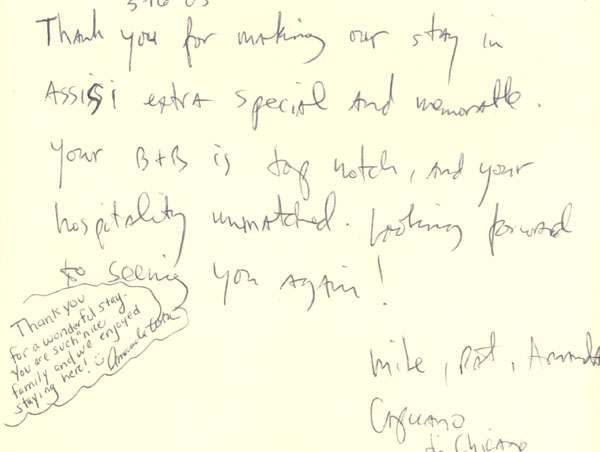 Thank you for making our stay in
Assisi extra special and memorable.
Your B+B is top notch, and your
hospitality unmatched. Looking forward
to seeing you again!
Thank you
for a wonderful stay.
You are such nice
family and we enjoyed
staying here!
Mike, Pat, Amanda
di Chicago